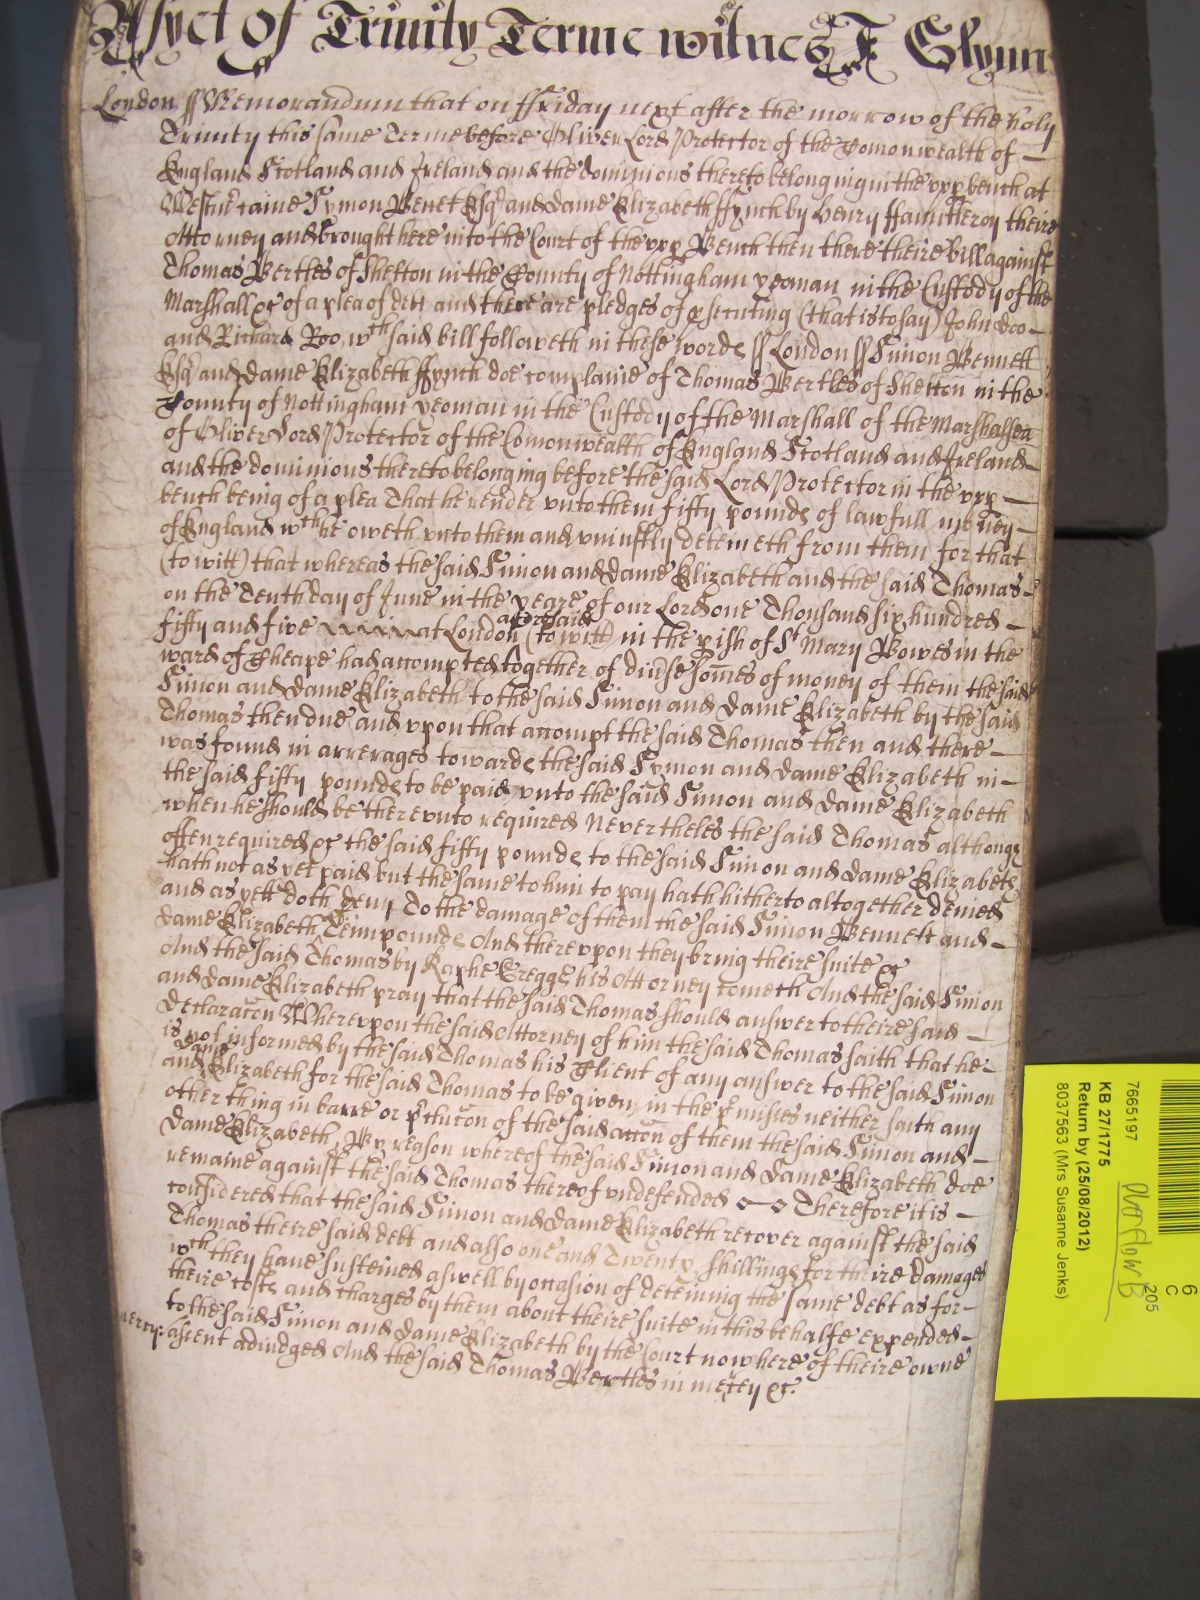 Asyet of Trinity Terme witnes J Glynn
London ss Memorandum that on ffriday next after the morrow of the holy
Trinity this same Terme before Oliver Lord Protector of the Comonwealth of
England Scotland and Ireland and the dominions thereto belonging in the vpp bench at
Westmr came Symon Benet Esqr and dame Elizabeth ffynch by Henry theire
Attorney and brought here into the Court of the vpp Bench then there theire Bill against
Thomas Bertles of Shelton in the County of Nottingham yeoman in the Custody of the
Marshall &c of a plea of dett and there are pledges of psecuting (that is to say) John Doo
and Richard Roo, wch said bill followeth in these words ss London ss Simon Bennett
Esqr and dame Elizabeth ffynch doe complaine of Thomas Bertles of Shelton in the
County of Nottingham yeoman in the Custody of the Marshall of the Marshalsea
of Oliver Lord Protector of the Comonwealth of England Scotland and Ireland
and the dominions thereto belonging before the said Lord Protector in the vpp
bench being of a plea That he render vnto them fifty pounds of lawfull money
of England wch he oweth vnto them and vniustly deteineth from them for that
(to witt) that whereas the said Simon and dame Elizabeth and the said Thomas
on the Tenth day of June in the yeare of our Lord one Thousand six hundred
fifty and five at London aforesaid (to witt) in the pish of St Mary Bowes in the
ward of Cheape had accompted together of diuse somes of money of them the said
Simon and dame Elizabeth to the said Simon and dame Elizabeth by the said
Thomas then due and vpon that accompt the said Thomas then and there
was found in arrerages towards the said Symon and dame Elizabeth in
the said fifty pounds to be paid vnto the said Simon and dame Elizabeth
when he should be therevnto required Nevertheles the said Thomas although
often required &c the said fifty pounds to the said Simon and dame Elizabeth
hath not as yet paid but the same to him to pay hath hitherto altogether denied
and as yett doth deny To the damage of them the said Simon Bennett and
dame Elizabeth Tenn pounds And therevpon they bring theire suite &c
And the said Thomas by Raphe Gregge his Attorney cometh And the said Simon
and dame Elizabeth pray that the said Thomas should answer to theire said
Declaracon Wherevpon the said Attorney of him the said Thomas saith that he
is not informed by the said Thomas his Client of any answer to the said Simon
and dame Elizabeth for the said Thomas to be given in the pmisses neither saith any
other thing in barre or pclucon of the said accon of them the said Simon and
dame Elizabeth, By reason whereof the said Simon and dame Elizabeth doe
remaine against the said Thomas thereof vndefended Therefore it is
considered that the said Simon and dame Elizabeth recover against the said
Thomas theire said debt and also one and Twenty shillings for theire damages
wch they haue susteined aswell by occasion of deteining the same debt as for
theire costs and charges by them about theire suite in this behalfe expended
to the said Simon and dame Elizabeth by the Court now here of theire owne
mercy. assent adiudged And the said Thomas Bertles in mercy &c.
7665197
KB 27/1775
Return by (25/08/2012)
8037563 (Mrs Susanne Jenks)
6
C
205